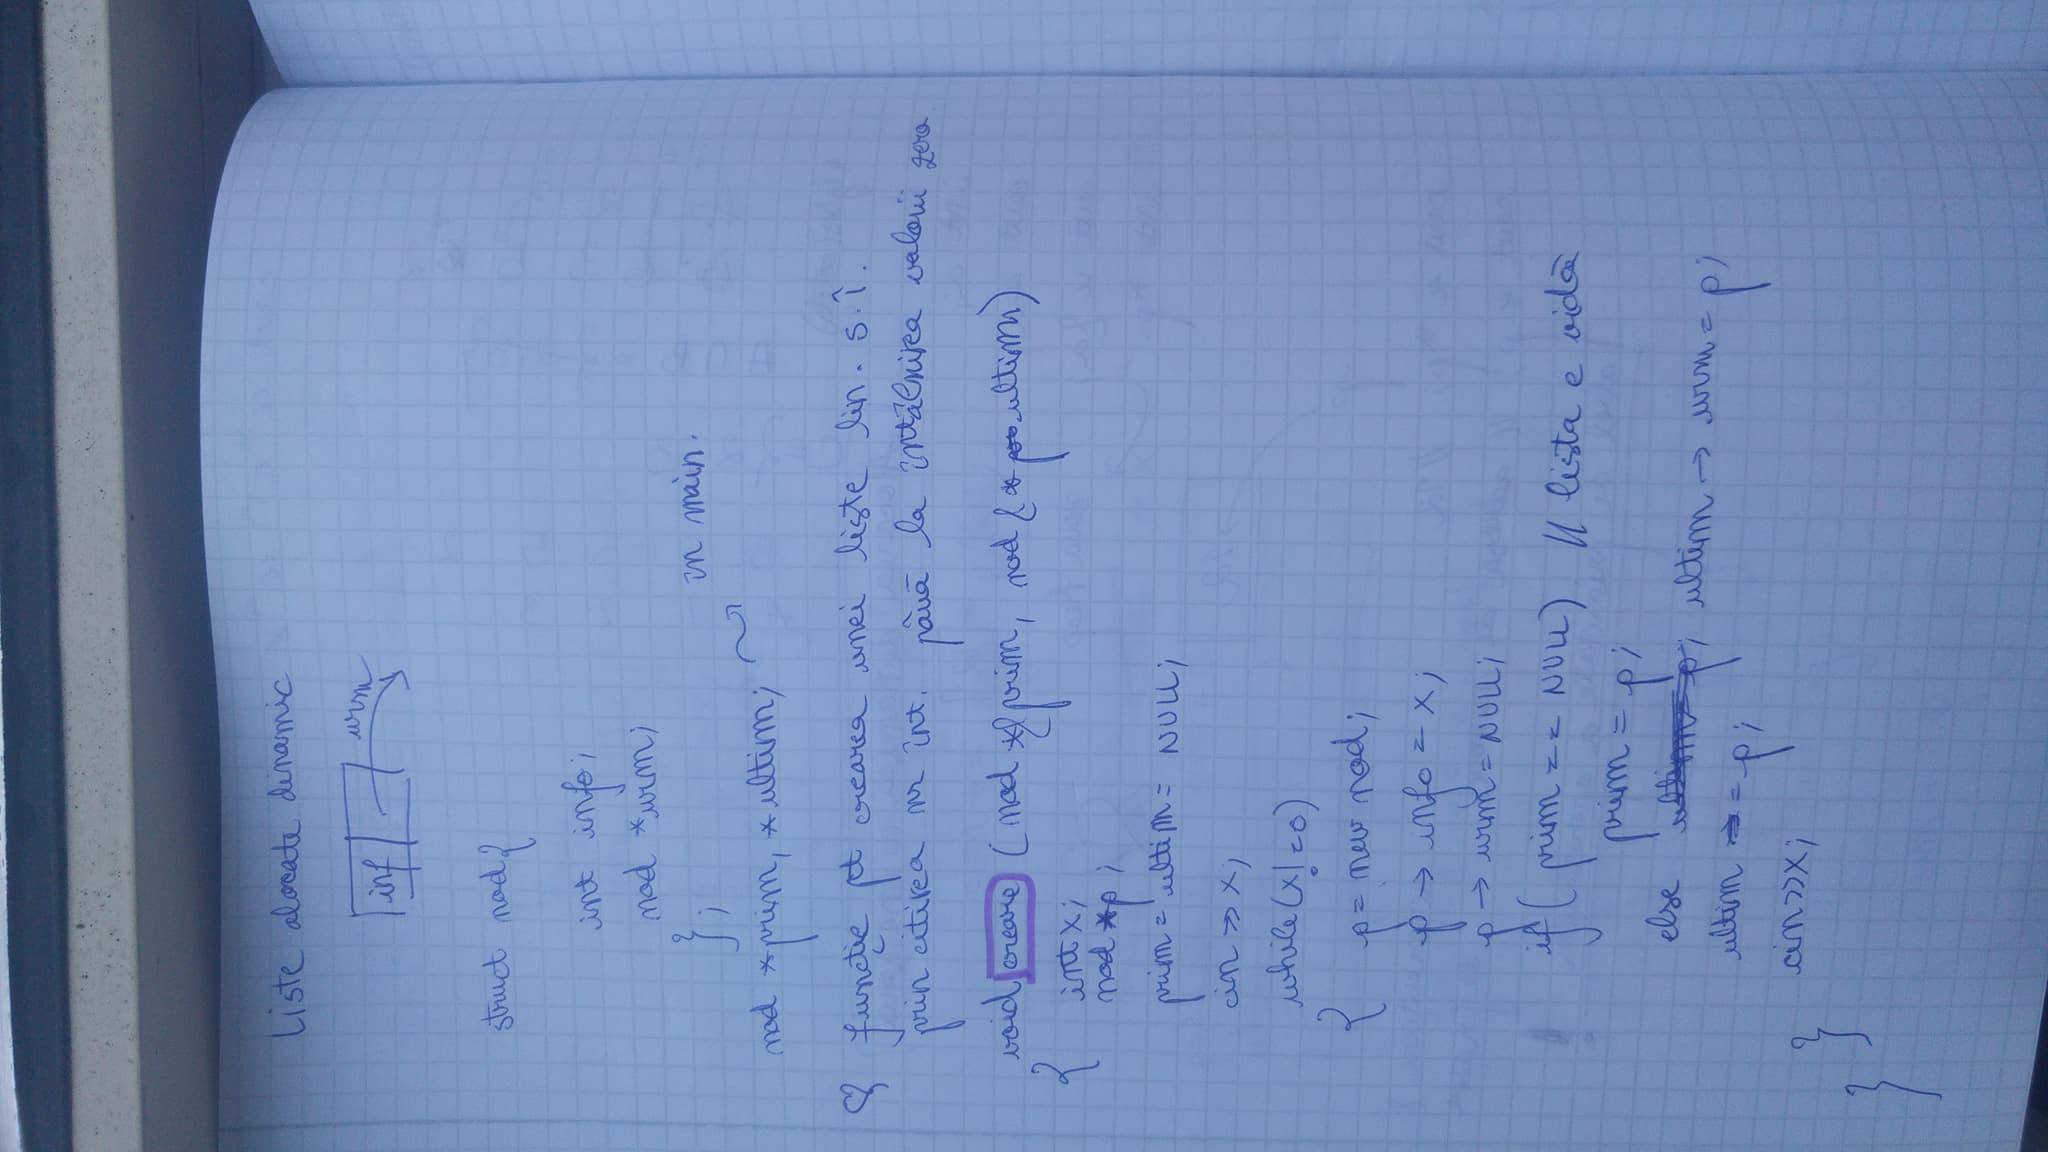 Liste alocate dinamic
inf
urm
struct nod{
int info;
nod *urm;
};
in main.
nod *prim, *ultim;
funcție pt crearea unei liste lin. s.î.
prin citirea nr int. până la întâlnirea valorii zero
void creare (nod *&prim, nod &* ultim)
{
int x;
nod *p;
prim = ultim = NULL;
cin >> x;
while(x!=0)
{
p = new nod;
p → info = x;
p → urm = NULL;
if (prim == NULL) // lista e vidă
prim = p;
else ultim → urm = p;
ultim = p;
cin>>x;
}
}